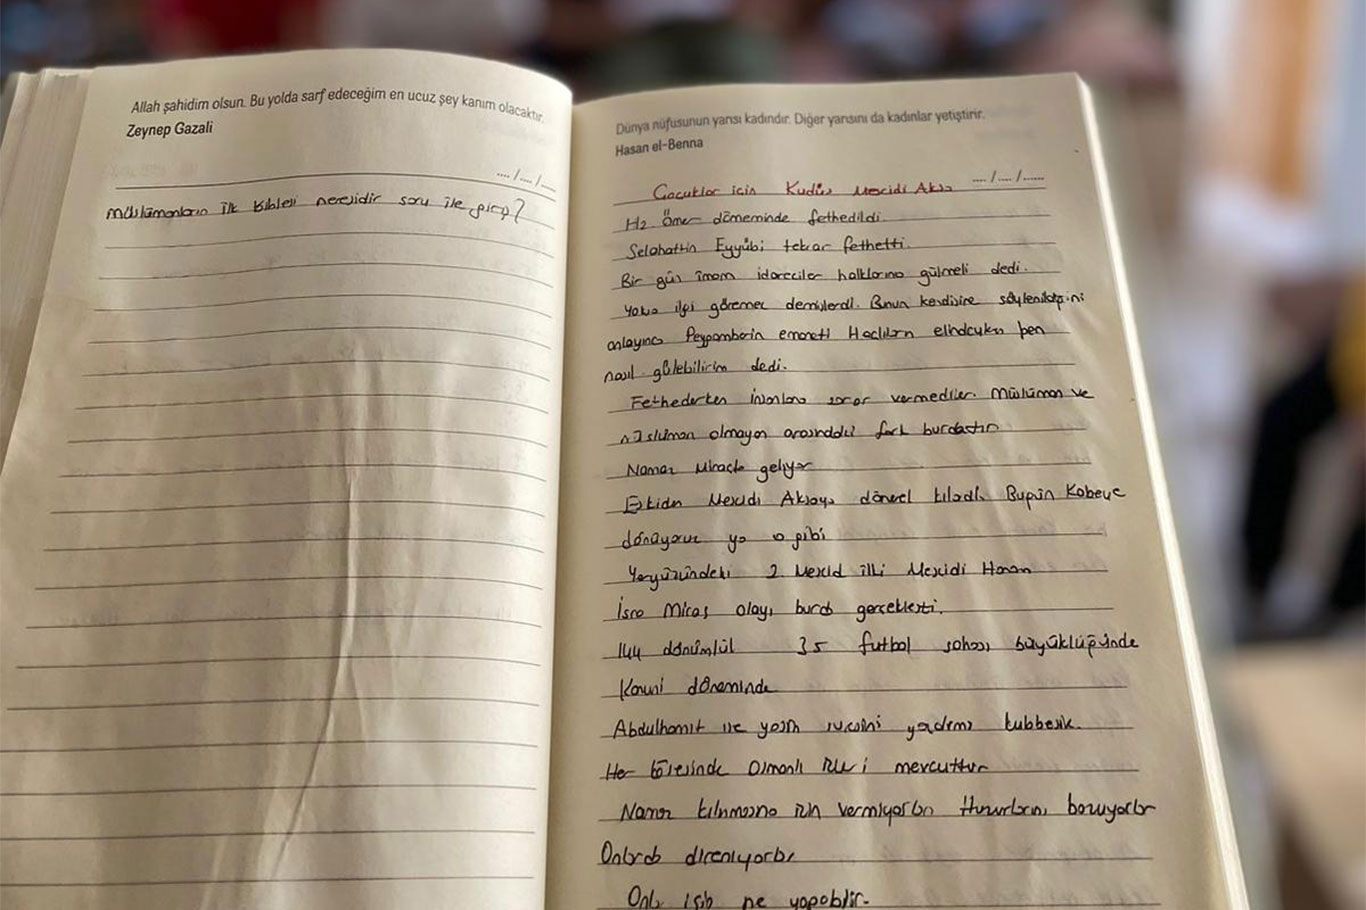 Allah şahidim olsun. Bu yolda sarf edeceğim en ucuz şey kanım olacaktır.
Zeynep Gazali
.... /.... /....
Müslümanların ilk kıblesi neresidir soru ile giriş?
Dünya nüfusunun yarısı kadındır. Diğer yarısını da kadınlar yetiştirir.
Hasan el-Benna
.... /.... /......
Çocuklar için Kudüs Mescidi Aksa
Hz. Ömer döneminde fethedildi.
Selahattin Eyyûbi tekrar fethetti.
Bir gün imam idareciler halklarına gülmeli dedi.
Yoksa ilgi göremez demişlerdi. Bunun kendisine söylenildiğini
anlayınca Peygamberin emaneti Haçlıların elindeyken ben
nasıl gülebilirim dedi.
Fethederken insanlara zarar vermediler. Müslüman ve
müslüman olmayan arasındaki fark burdadır
Namaz Miraçta geliyor
Eskiden Mescidi Aksaya dönerek kılardı. Bugün Kabeye
dönüyoruz ya o gibi
Yeryüzündeki 2. Mescid ilki Mescidi Haram
İsra Miraç olayı burda gerçekleşti.
144 dönümlük 35 futbol sahası büyüklüğünde
Kanuni döneminde
Abdulhamit ise yasin
Her köşesinde Osmanlı izleri mevcuttur
Namaz kılınmasına izin vermiyorlar. Huzurlarını bozuyorlar
Onlarda direniyorlar
Onlar için ne yapabilir.